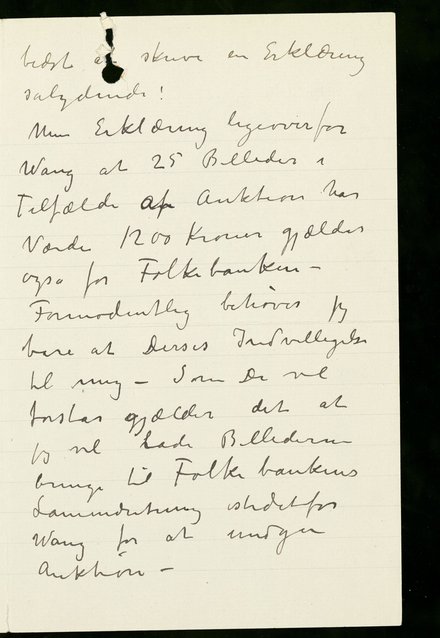 bedst at skrive en Erklæring
salydende!
Min Erklæring ligeoverfor
Wang at 25 Billeder i
Tilfælde af Auktion har
Værdi 1200 Kroner gjælder
også for Folkebanken –
Formodentlig behøves jeg
bare at Deres Indvilligelse
til mig – Som De vil
forstår gjælder det at
jeg vil lade Billederne
bringe til Folkebankens
istedetfor
Wang for at undgå
Auktion –